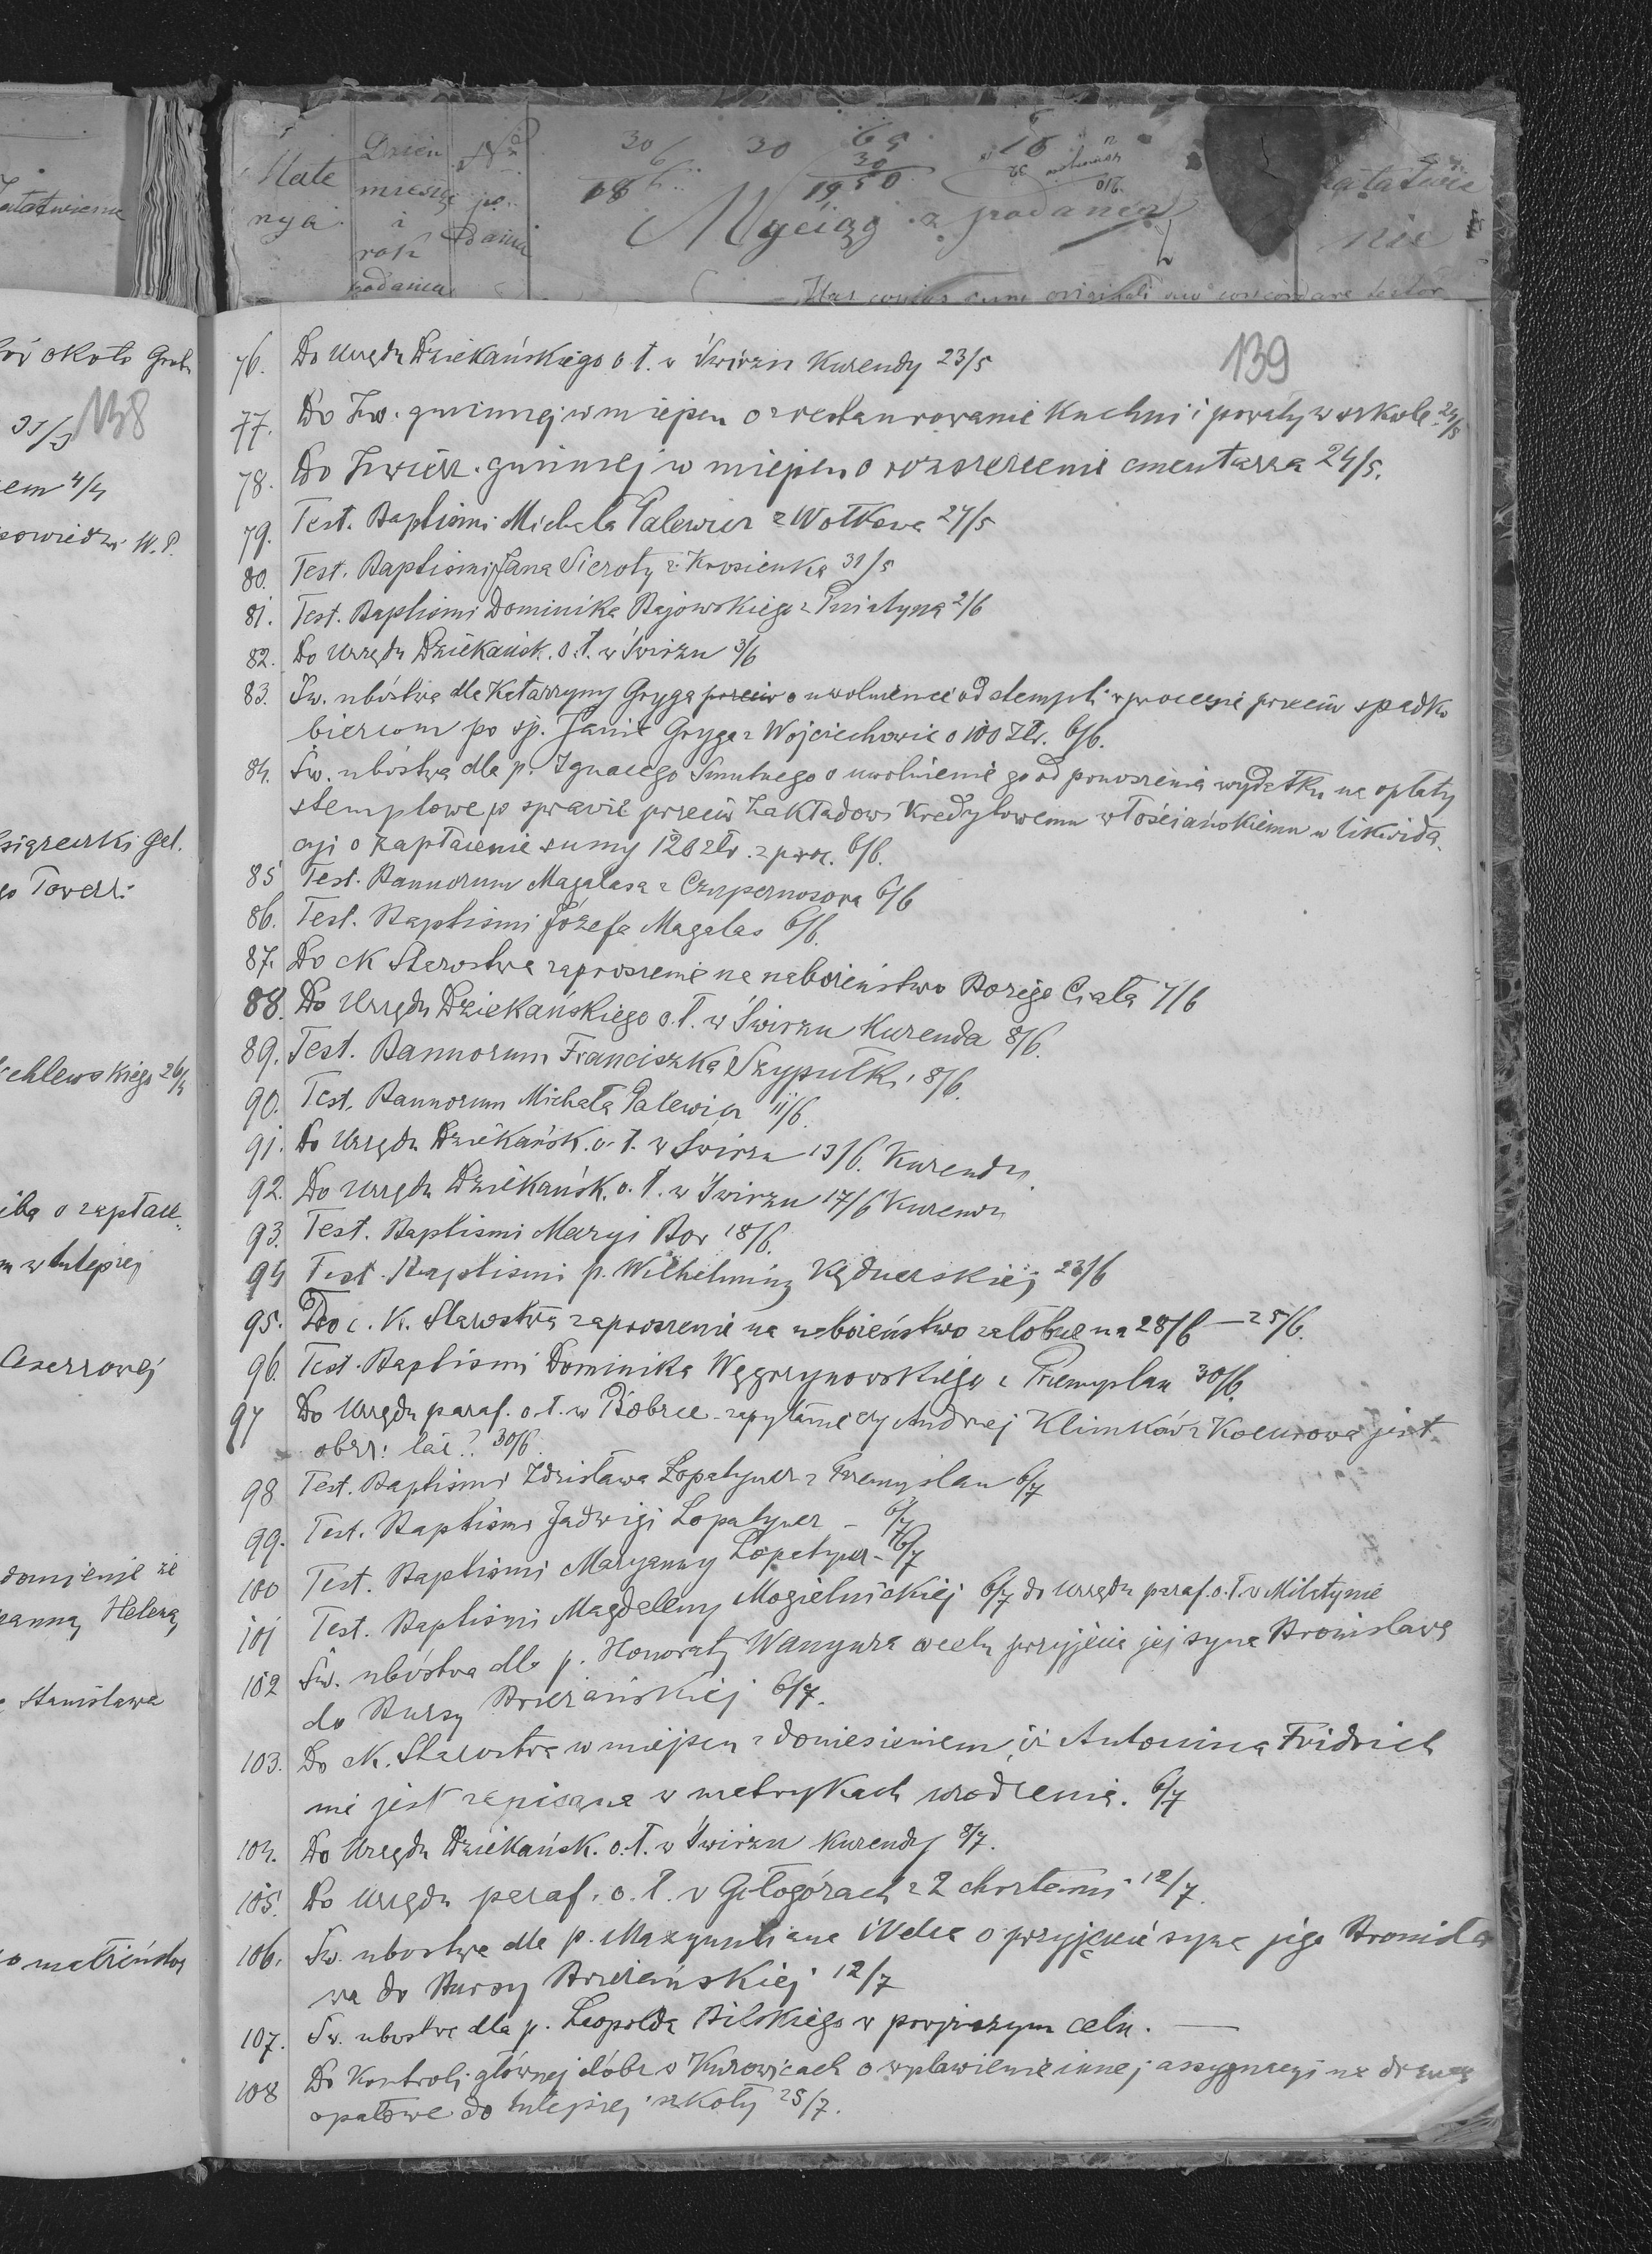 Mate
rya
Dzień
miesiąc
i
rok
podania
po
dania
30
6
18 6
30
65
30
19 50
Wyciąg z podania
załatwie
nie
139
76. Do Urzędu Dziekańskiego o. ł. w Świrzu Kurendy 23/5
77. Do Zw. gminnej w miejscu o zrestaurowanie Kuchni i powały w szkole 24/5
78. Do Zwierz. gminnej w miejscu o rozszerzenie cmentarza 24/5.
79. Test. Baptismi Michała Palewicz z Wołkowa 27/5
80. Test. Baptismi Jana Sieroty z Krosienka 31/5
81. Test. Baptismi Dominika Bajowskiego z Pniatyna 2/6
82. Do Urzędu Dziekańsk. o. ł. w Świrzu 3/6
83. Św. ubóstwa dla Katarzyny Gryga przeciw o uwolnienie od stempli w procesie przeciw spadko
biercom po śp. Janie Gryga z Wojciechowic o 100 Złr. 6/6.
84. Św. ubóstwa dla p. Ignacego Smutnego o uwolnienie go od ponoszenia wydatku na opłaty
stemplowe w sprawie przeciw Zakładowi Kredytowemu włościańskiemu w likwida
cyi o zapłacenie sumy 120 złr. z proc. 6/6.
85 Test. Bannorum Magalasa z Czupernosowa 6/6
86. Test. Baptismi Józefa Magalas 6/6.
87. Do cK Starostwa zaproszenie na nabożeństwo Bożego Ciała 7/6
88. Do Urzędu Dziekańskiego o. ł. w Świrzu Kurenda 8/6.
89. Test. Bannorum Franciszka Szypułki 8/6.
90. Test. Bannorum Michała Palewicz 11/6.
91. Do Urzędu Dziekańsk. o. ł. w Świrzu 13/6. Kurendy
92. Do Urzędu Dziekańsk. o. ł. w Świrzu 17/6 Kurendy
93. Test. Baptismi Maryi Bor 18/6.
94 Test. Baptismi p. Wilhelminy Kędzierskiej 23/6
95. Do c. K. Starostwa zaproszenie na nabożeństwo żałobne na 28/6 — 25/6.
96. Test. Baptismi Dominika Węgrzynowskiego z Przemyślan 30/6.
97 Do Urzędu paraf. o. ł. w Bóbrce zapytanie czy Andrzej Klimków z Kocurowa jest
obrz: łać? 30/6.
98 Test. Baptismi Zdzisława Łopatyner z Przemyślan 6/7
99. Test. Baptismi Jadwigi Łopatyner – 6/7
100 Test. Baptismi Maryanny Łopatyner – 6/7
101 Test. Baptismi Magdaleny Mogielnickiej 6/7 do Urzędu paraf. o. ł. w Milatynie
102 Św. ubóstwa dla p. Honoraty Wanyura w celu przyjęcia jej syna Bronisława
do Bursy Brzeżańskiej 6/7.
103. Do cK. Starostwa w miejscu z doniesieniem, iż Antonina Fridrich
nie jest zapisana w metrykach urodzenia. 6/7
104. Do Urzędu Dziekańsk. o. ł. w Świrzu Kurendy 8/7.
105. Do Urzędu paraf. o. ł. w Gołogórach z 2 chrztami 12/7.
106. Św. ubóstwa dla p. Maxymiliana Welca o przyjęcie syna jego Bronisła
wa do Bursy Brzeżańskiej 12/7
107. Św. ubóstwa dla p. Leopolda Bilskiego w powyższym celu. —
108 Do Kontroli głównej dóbr w Kurowicach o wystawienie innej assygnacyi na drzewo
opałowe do tutejszej szkoły 25/7.